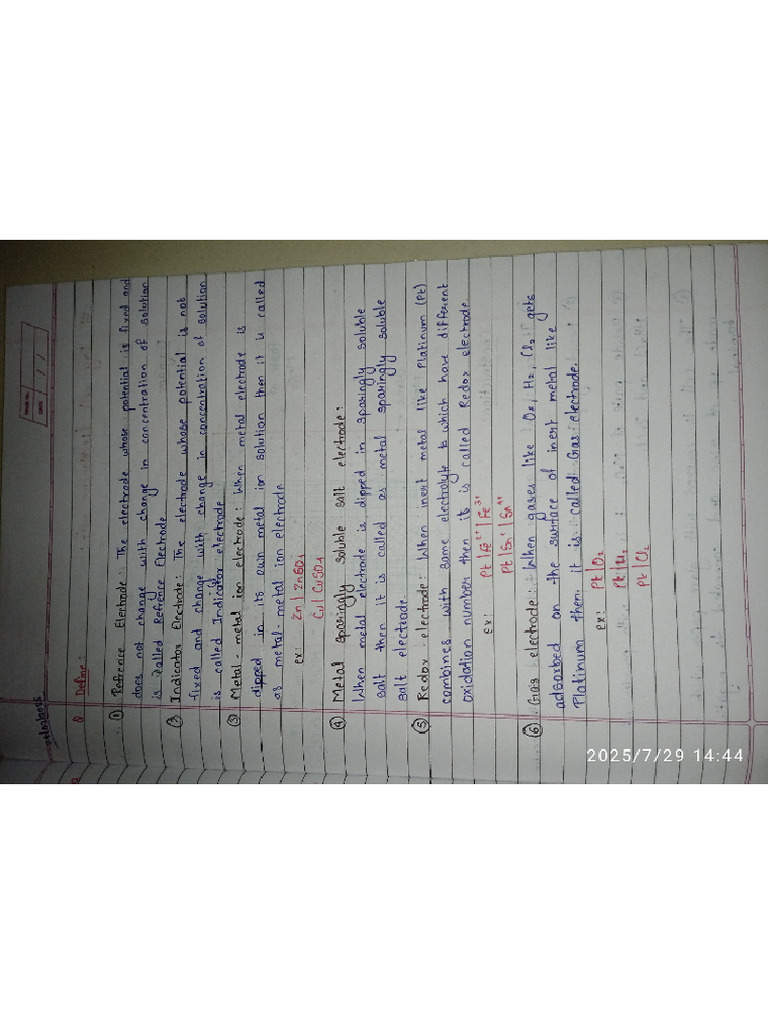 PAGE NO.
DATE
Q Define:
① Refrence Electrode: The electrode whose potential is fixed and
does not change with change in concentration of solution
is called Refrence Electrode
② Indicator Electrode: The electrode whose potential is not
fixed and change with change in concentration of solution
is called Indicator electrode
③ Metal-metal ion electrode: When metal electrode is
dipped in its own metal ion solution then it is called
as metal-metal ion electrode
ex: Zn | ZnSO4
Cu | CuSO4
④ Metal sparingly soluble salt electrode:
When metal electrode is dipped in sparingly soluble
salt then it is called as metal sparingly soluble
salt electrode.
⑤ Redox electrode: When inert metal like Platinum (Pt)
combines with same electrolyte to which have different
oxidation number then it is called Redox electrode
ex: Pt | Fe2+ | Fe3+
Pt | Sn | Sn4+
⑥ Gas electrode: When gases like O2, H2, Cl2 gets
adsorbed on the surface of inert metal like
Platinum then it is called Gas electrode.
ex: Pt | O2
Pt | H2
Pt | Cl2
2025/7/29 14:44